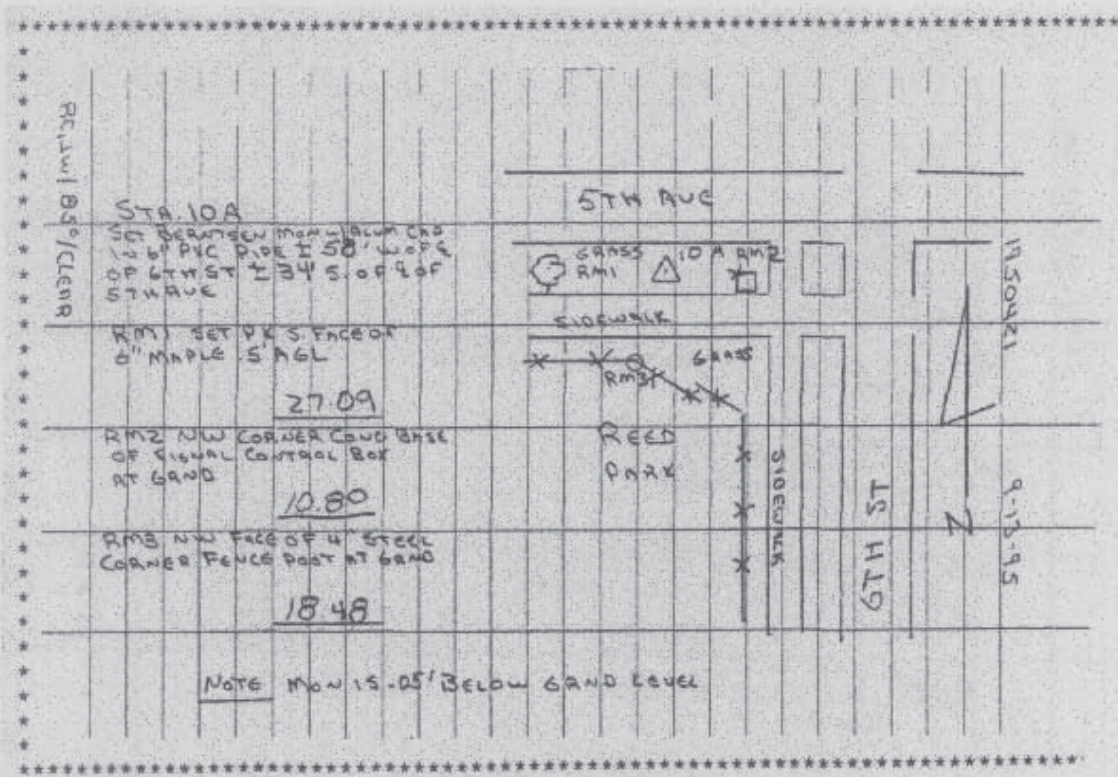 RC, LW / 85° / CLEAR
STA. 10A
SET BERNTSEN MON W/ALUM CAP
IN 6" PVC PIPE ± 50' W. OF ℄
OF 6TH ST ± 34' S. OF ℄ OF
5TH AVE
RM1 SET PK S. FACE OF
6" MAPLE .5 AGL
27.09
RM2 NW CORNER CONC BASE
OF SIGNAL CONTROL BOX
AT GRND
10.80
RM3 NW FACE OF 4" STEEL
CORNER FENCE POST AT GRND
18.48
NOTE MON IS .05' BELOW GRND LEVEL
5TH AVE
GRASS
RM1
10 A
RM2
SIDEWALK
GRASS
RM3
REED
PARK
SIDEWALK
6TH ST
N
1950421
9-13-95